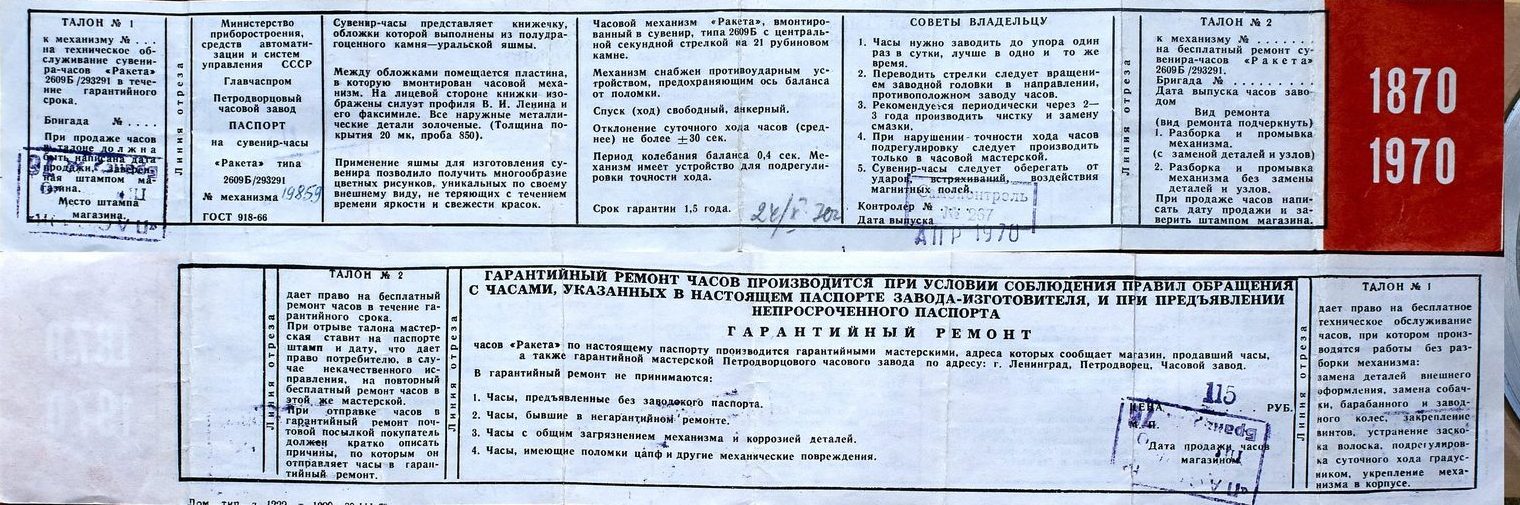 ТАЛОН № 1
к механизму № . . .
на техническое об-
служивание сувени-
ра-часов «Ракета»
2609Б/293291 в тече-
ние гарантийного
срока.
Бригада № . . . .
При продаже часов
в талоне должна
быть написана дата
продажи, заверен-
ная штампом ма-
газина.
Место штампа
магазина.
Линия отреза
Министерство
приборостроения,
средств автомати-
зации и систем
управления СССР
Главчаспром
Петродворцовый
часовой завод
ПАСПОРТ
на сувенир-часы
«Ракета» типа
2609Б/293291
№ механизма 19859
ГОСТ 918-66
Сувенир-часы представляет книжечку,
обложки которой выполнены из полудра-
гоценного камня—уральской яшмы.
Между обложками помещается пластина,
в которую вмонтирован часовой меха-
низм. На лицевой стороне книжки изо-
бражены силуэт профиля В. И. Ленина и
его факсимиле. Все наружные металли-
ческие детали золоченые. (Толщина по-
крытия 20 мк, проба 850).
Применение яшмы для изготовления су-
венира позволило получить многообразие
цветных рисунков, уникальных по своему
внешнему виду, не теряющих с течением
времени яркости и свежести красок.
Часовой механизм «Ракета», вмонтиро-
ванный в сувенир, типа 2609Б с централь-
ной секундной стрелкой на 21 рубиновом
камне.
Механизм снабжен противоударным ус-
тройством, предохраняющим ось баланса
от поломки.
Спуск (ход) свободный, анкерный.
Отклонение суточного хода часов (сред-
нее) не более ±30 сек.
Период колебания баланса 0,4 сек. Ме-
ханизм имеет устройство для подрегули-
ровки точности хода.
Срок гарантии 1,5 года.
СОВЕТЫ ВЛАДЕЛЬЦУ
1. Часы нужно заводить до упора один
раз в сутки, лучше в одно и то же
время.
2. Переводить стрелки следует вращени-
ем заводной головки в направлении,
противоположном заводу часов.
3. Рекомендуется периодически через 2—
3 года производить чистку и замену
смазки.
4. При нарушении точности хода часов
подрегулировку следует производить
только в часовой мастерской.
5. Сувенир-часы следует оберегать от
ударов, встряхиваний, воздействия
магнитных полей.
Самоконтроль
Контролер № № 267
Дата выпуска
АПР 1970
Линия отреза
ТАЛОН № 2
к механизму № . . . . . . .
на бесплатный ремонт су-
венира-часов «Ракета»
2609Б/293291.
Бригада № . . . . . . . .
Дата выпуска часов заво-
дом
Вид ремонта
(вид ремонта подчеркнуть)
1. Разборка и промывка
механизма.
(с заменой деталей и узлов)
2. Разборка и промывка
механизма без замены
деталей и узлов.
При продаже часов напи-
сать дату продажи и за-
верить штампом магазина.
1870
1970
Линия отреза
ТАЛОН № 2
дает право на бесплатный
ремонт часов в течение га-
рантийного срока.
При отрыве талона мастер-
ская ставит на паспорте
штамп и дату, что дает
право потребителю, в слу-
чае некачественного ис-
правления, на повторный
бесплатный ремонт часов в
этой же мастерской.
При отправке часов в
гарантийный ремонт поч-
товой посылкой покупатель
должен кратко описать
причины, по которым он
отправляет часы в гаран-
тийный ремонт.
Линия отреза
ГАРАНТИЙНЫЙ РЕМОНТ ЧАСОВ ПРОИЗВОДИТСЯ ПРИ УСЛОВИИ СОБЛЮДЕНИЯ ПРАВИЛ ОБРАЩЕНИЯ
С ЧАСАМИ, УКАЗАННЫХ В НАСТОЯЩЕМ ПАСПОРТЕ ЗАВОДА-ИЗГОТОВИТЕЛЯ, И ПРИ ПРЕДЪЯВЛЕНИИ
НЕПРОСРОЧЕННОГО ПАСПОРТА
ГАРАНТИЙНЫЙ РЕМОНТ
часов «Ракета» по настоящему паспорту производится гарантийными мастерскими, адреса которых сообщает магазин, продавший часы,
а также гарантийной мастерской Петродворцового часового завода по адресу: г. Ленинград, Петродворец, Часовой завод.
В гарантийный ремонт не принимаются:
1. Часы, предъявленные без заводского паспорта.
2. Часы, бывшие в негарантийном ремонте.
3. Часы с общим загрязнением механизма и коррозией деталей.
4. Часы, имеющие поломки цапф и другие механические повреждения.
115
ЦЕНА РУБ.
Дата продажи часов
магазином
Линия отреза
ТАЛОН № 1
дает право на бесплатное
техническое обслуживание
часов, при котором произ-
водятся работы без раз-
борки механизма:
замена деталей внешнего
оформления, замена собач-
ки, барабанного и завод-
ного колес, закрепление
винтов, устранение заско-
ка волоска, подрегулиров-
ка суточного хода градус-
ником, укрепление меха-
низма в корпусе.